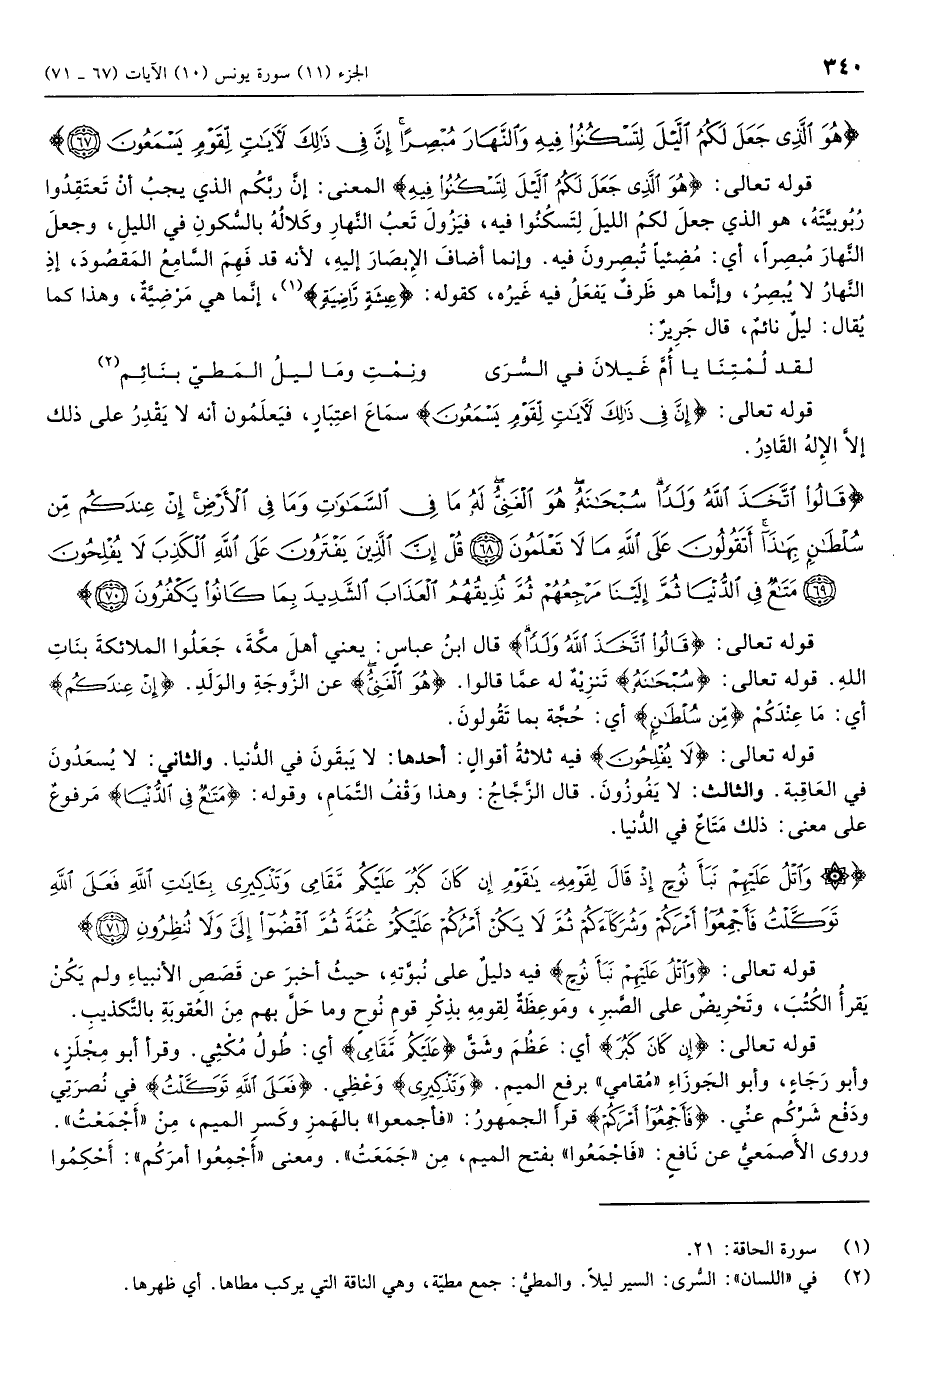 ٣٤٠ الجزء (١١) سورة يونس (١٠) الآيات (٦٧ - ٧١)
﴿هُوَ ٱلَّذِى جَعَلَ لَكُمُ ٱلَّيْلَ لِتَسْكُنُوا۟ فِيهِ وَٱلنَّهَارَ مُبْصِرًا ۚ إِنَّ فِى ذَٰلِكَ لَـَٔايَـٰتٍ لِّقَوْمٍ يَسْمَعُونَ ٦٧﴾
قوله تعالى: ﴿هُوَ ٱلَّذِى جَعَلَ لَكُمُ ٱلَّيْلَ لِتَسْكُنُوا۟ فِيهِ﴾ المعنى: إنَّ ربَّكم الذي يجبُ أنْ تَعتَقِدُوا
رُبُوبيَّتَهُ، هو الذي جعلَ لكمُ الليلَ لِتَسكُنُوا فيه، فيَزُولَ تعبُ النَّهارِ وكَلالُهُ بالسُّكونِ في الليلِ، وجعلَ
النَّهارَ مُبصِراً، أي: مُضئياً تُبصِرونَ فيه. وإنما أضافَ الإبصَارَ إليهِ، لأنه قد فهِمَ السَّامِعُ المَقصُودَ، إذِ
النَّهارُ لا يُبصِرُ، وإنَّما هو ظَرفٌ يَفعَلُ فيه غَيرُه، كقوله: ﴿عِيشَةٍ رَّاضِيَةٍ﴾(١)، إنَّما هي مَرْضِيَّةٌ، وهذا كما
يُقال: ليلٌ نائمٌ، قال جَرِيرٌ:
لقد لُمْتِنَا يا أُمَّ غَيلانَ في السُّرَى ونِمْتِ ومَا ليلُ المَطيِّ بنَائِمِ(٢)
قوله تعالى: ﴿إِنَّ فِى ذَٰلِكَ لَـَٔايَـٰتٍ لِّقَوْمٍ يَسْمَعُونَ﴾ سماعَ اعتِبَارٍ، فيَعلَمُون أنه لا يَقْدِرُ على ذلك
إلاَّ الإلهُ القَادِرُ.
﴿قَالُوا۟ ٱتَّخَذَ ٱللَّهُ وَلَدًا ۗ سُبْحَـٰنَهُۥ ۖ هُوَ ٱلْغَنِىُّ ۖ لَهُۥ مَا فِى ٱلسَّمَـٰوَٰتِ وَمَا فِى ٱلْأَرْضِ ۚ إِنْ عِندَكُم مِّن
سُلْطَـٰنٍۭ بِهَـٰذَآ ۚ أَتَقُولُونَ عَلَى ٱللَّهِ مَا لَا تَعْلَمُونَ ٦٨ قُلْ إِنَّ ٱلَّذِينَ يَفْتَرُونَ عَلَى ٱللَّهِ ٱلْكَذِبَ لَا يُفْلِحُونَ
٦٩ مَتَـٰعٌ فِى ٱلدُّنْيَا ثُمَّ إِلَيْنَا مَرْجِعُهُمْ ثُمَّ نُذِيقُهُمُ ٱلْعَذَابَ ٱلشَّدِيدَ بِمَا كَانُوا۟ يَكْفُرُونَ ٧٠﴾
قوله تعالى: ﴿قَالُوا۟ ٱتَّخَذَ ٱللَّهُ وَلَدًا﴾ قال ابنُ عباسٍ: يعني أهلَ مكَّةَ، جَعَلُوا الملائكةَ بنَاتِ
اللهِ. قوله تعالى: ﴿سُبْحَـٰنَهُۥ﴾ تَنزِيهٌ له عمَّا قالوا. ﴿هُوَ ٱلْغَنِىُّ﴾ عن الزَّوجَةِ والوَلَدِ. ﴿إِنْ عِندَكُم﴾
أي: مَا عِنْدَكُمْ ﴿مِّن سُلْطَـٰنٍ﴾ أي: حُجَّة بما تَقُولونَ.
قوله تعالى: ﴿لَا يُفْلِحُونَ﴾ فيه ثلاثةُ أقوالٍ: أحدها: لا يَبقَونَ في الدُّنيا. والثاني: لا يُسعَدُونَ
في العَاقِبة. والثالث: لا يَفُوزُونَ. قال الزَّجَّاجُ: وهذا وَقْفُ التَّمامِ، وقوله: ﴿مَتَـٰعٌ فِى ٱلدُّنْيَا﴾ مَرفوعٌ
على معنى: ذلك مَتَاعٌ في الدُّنيا.
﴿۞ وَٱتْلُ عَلَيْهِمْ نَبَأَ نُوحٍ إِذْ قَالَ لِقَوْمِهِۦ يَـٰقَوْمِ إِن كَانَ كَبُرَ عَلَيْكُم مَّقَامِى وَتَذْكِيرِى بِـَٔايَـٰتِ ٱللَّهِ فَعَلَى ٱللَّهِ
تَوَكَّلْتُ فَأَجْمِعُوٓا۟ أَمْرَكُمْ وَشُرَكَآءَكُمْ ثُمَّ لَا يَكُنْ أَمْرُكُمْ عَلَيْكُمْ غُمَّةً ثُمَّ ٱقْضُوٓا۟ إِلَىَّ وَلَا تُنظِرُونِ ٧١﴾
قوله تعالى: ﴿وَٱتْلُ عَلَيْهِمْ نَبَأَ نُوحٍ﴾ فيه دليلٌ على نُبوَّتِه، حيثُ أخبرَ عن قَصَصِ الأنبياءِ ولم يَكُنْ
يَقرأُ الكُتُبَ، وتَحْرِيضٌ على الصَّبرِ، ومَوعِظَةٌ لِقومِهِ بذِكْرِ قومِ نُوحٍ وما حَلَّ بهم مِنَ العُقوبَةِ بالتَّكذيبِ.
قوله تعالى: ﴿إِن كَانَ كَبُرَ﴾ أي: عَظُمَ وشَقَّ ﴿عَلَيْكُم مَّقَامِى﴾ أي: طُولُ مُكْثِي. وقرأ أبو مِجْلَزٍ،
وأبو رَجَاءٍ، وأبو الجَوزَاءِ «مُقامي» برفعِ الميمِ. ﴿وَتَذْكِيرِى﴾ وَعْظِي. ﴿فَعَلَى ٱللَّهِ تَوَكَّلْتُ﴾ في نُصرَتِي
ودَفْعِ شَرِّكُم عنِّي. ﴿فَأَجْمِعُوٓا۟ أَمْرَكُمْ﴾ قرأَ الجمهورُ: «فأجمعوا» بالهَمزِ وكَسرِ الميمِ، مِنْ «أَجْمَعْتُ».
وروى الأَصمَعيُّ عن نَافعٍ: «فَاجْمَعُوا» بفتح الميمِ، مِن «جَمَعَتُ». ومعنى «أَجْمِعُوا أمرَكُم»: أَحْكِمُوا
(١) سورة الحاقة: ٢١.
(٢) في «اللسان»: السُّرى: السير ليلاً. والمطيُّ: جمع مطيّة، وهي الناقة التي يركب مطاها. أي ظهرها.